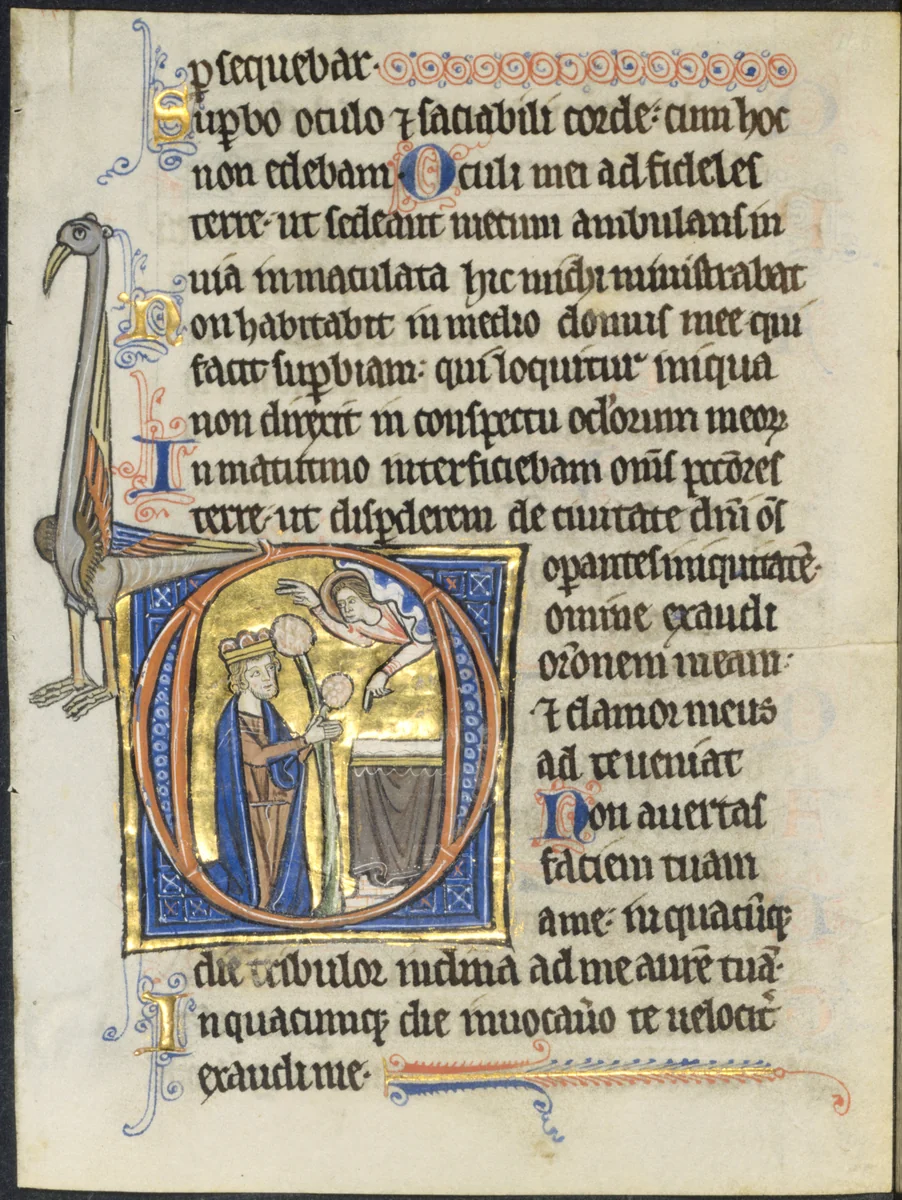 ꝑsequebar.
Suꝑbo oculo ⁊ saciabili corde: cum hoc
non edebam. Oculi mei ad fideles
terre. ut sedeant mecum ambulans in
uia inmaculata hic michi ministrabat
Non habitabit in medio domus mee qui
facit suꝑbiam: qui loquitur iniqua
non direxit in conspectu oculorum meoꝝ
In matutino interficiebam om̄s pctōres
terre. ut disꝑderem de ciuitate dn̄i om̄s
oꝑantes iniquitatē.
Domine exaudi
orōnem meam:
⁊ clamor meus
ad te ueniat
Non auertas
faciem tuam
a me. in quacūqꝫ
die tribulor inclina ad me aurē tuā.
In quacumqꝫ die inuocau̾o te uelocit̾
exaudi me.